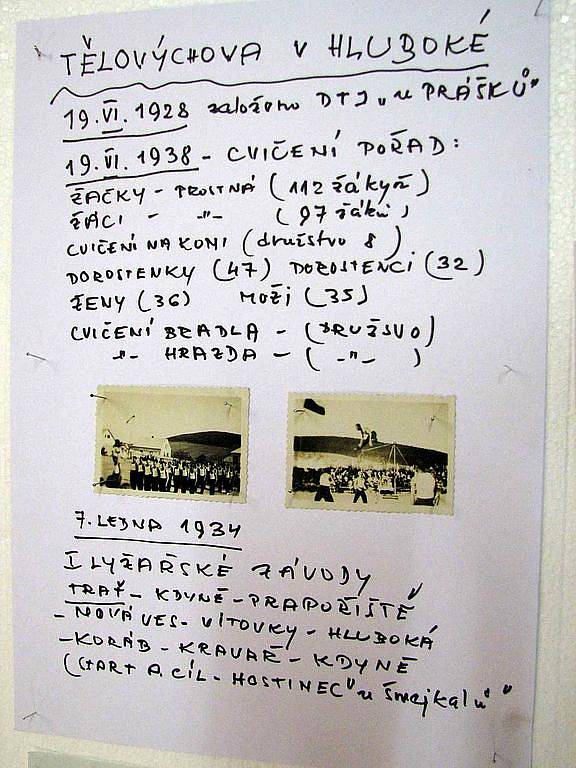 TĚLOVÝCHOVA V HLUBOKÉ
19. VI. 1928 založeno DTJ „u PRÁŠKŮ"
19. VI. 1938 - CVIČENÍ POŘAD:
ŽAČKY - PROSTNÁ (112 žákyň)
ŽÁCI - -"- (97 žáků)
CVIČENÍ NA KONI (družstvo 8)
DOROSTENKY (47) DOROSTENCI (32)
ŽENY (36) MOŽI (35)
CVIČENÍ BRADLA - (DRUŽSVO)
-"- HRAZDA - (-"-)
7. LEDNA 1934
I LYŽAŘSKÉ ZÁVODY
TRAŤ - KDYNĚ - PRAPOŘIŠTĚ
- NOVÁ VES - VÍTOVKY - HLUBOKÁ
- KORÁB - KRAVAŘ - KDYNĚ
(START A CÍL - HOSTINEC "u Šmejkalů"